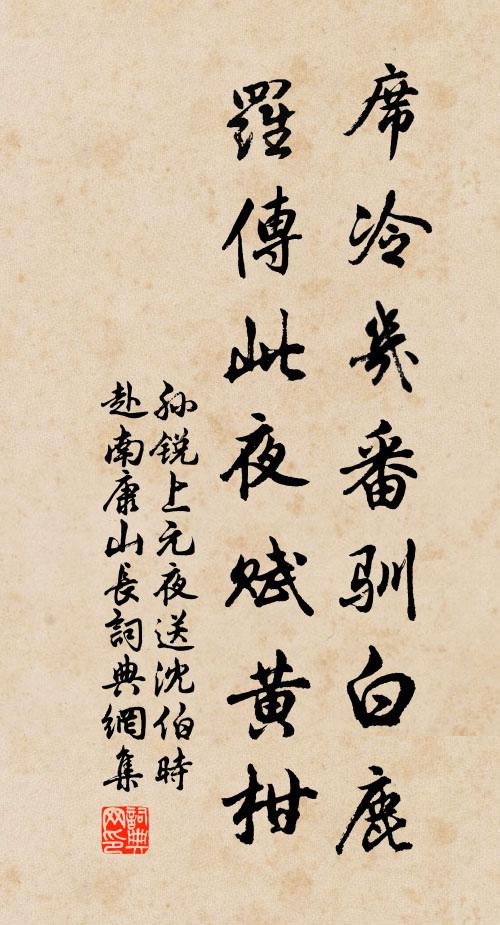 席冷幾番驯白鹿
羅傳此夜赋黄柑
孙锐上元夜送沈伯時
赴南康山長詞典網集
詞典网印